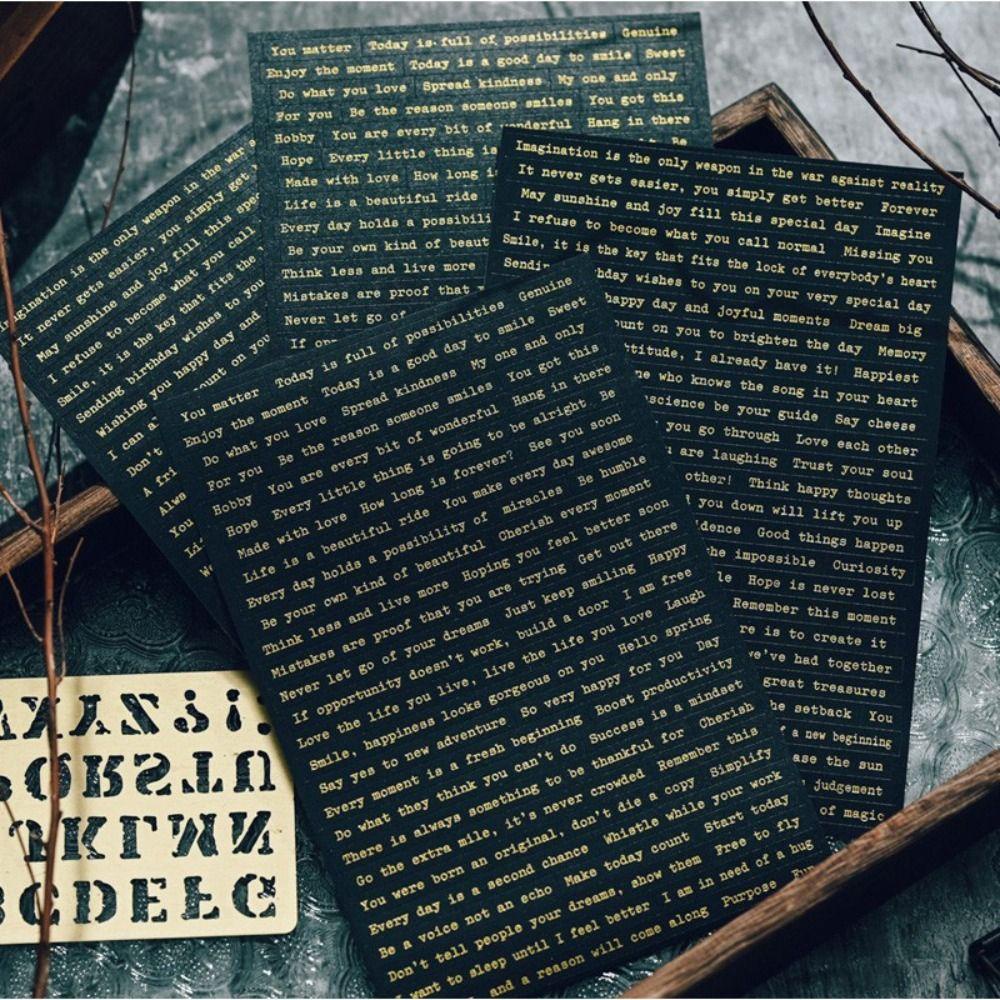 You matter Today is full of possibilities Genuine
Enjoy the moment Today is a good day to smile Sweet
Do what you love Spread kindness My one and only
For you Be the reason someone smiles You got this
Hobby You are every bit of wonderful Hang in there
Hope Every little thing is Be
Made with love How long i
Life is a beautiful ride
Every day holds a possibili
Be your own kind of beaut
Think less and live more
Mistakes are proof that
Never let go of
If opp
Imagination is the only weapon in the war against reality
It never gets easier, you simply get better Forever
May sunshine and joy fill this special day Imagine
I refuse to become what you call normal Missing you
Smile, it is the key that fits the lock of everybody's heart
Sendin hday wishes to you on your very special day
happy day and joyful moments Dream big
ount on you to brighten the day Memory
ttitude, I already have it! Happiest
ne who knows the song in your heart
science be your guide Say cheese
you go through Love each other
are laughing Trust your soul
other! Think happy thoughts
you down will lift you up
dence Good things happen
he impossible Curiosity
le Hope is never lost
Remember this moment
re is to create it
we've had together
great treasures
he setback You
a new beginning
ase the sun
judgement
of magic
magination is the only weapon in the war
It never gets easier, you simply get
May sunshine and joy fill this spe
I refuse to become what you call
Smile, it is the key that fits the
Sending birthday wishes to you
Wishing you happy day and
I can count on you
Don't
A fri
Alwa
You
You matter Today is full of possibilities Genuine
Enjoy the moment Today is a good day to smile Sweet
Do what you love Spread kindness My one and only
For you Be the reason someone smiles You got this
Hobby You are every bit of wonderful Hang in there
Hope Every little thing is going to be alright Be
Made with love How long is forever? See you soon
Life is a beautiful ride You make every day awesome
Every day holds a possibility of miracles Be humble
Be your own kind of beautiful Cherish every moment
Think less and live more Hoping you feel better soon
Mistakes are proof that you are trying Get out there
Never let go of your dreams Just keep smiling Happy
If opportunity doesn't work, build a door I am free
Love the life you live, live the life you love Laugh
Smile, happiness looks gorgeous on you Hello spring
Say yes to new adventure So very happy for you Day
Every moment is a fresh beginning Boost productivity
Do what they think you can't do Success is a mindset
There is always something to be thankful for Cherish
Go the extra mile, it's never crowded Remember this
You were born an original, don't die a copy Simplify
Every day is a second chance Whistle while your work
Be a voice not an echo Make today count Start today
Don't tell people your dreams, show them Free to fly
I want to sleep until I feel better I am in need of a hug
and a reason will come along Purpose Fun